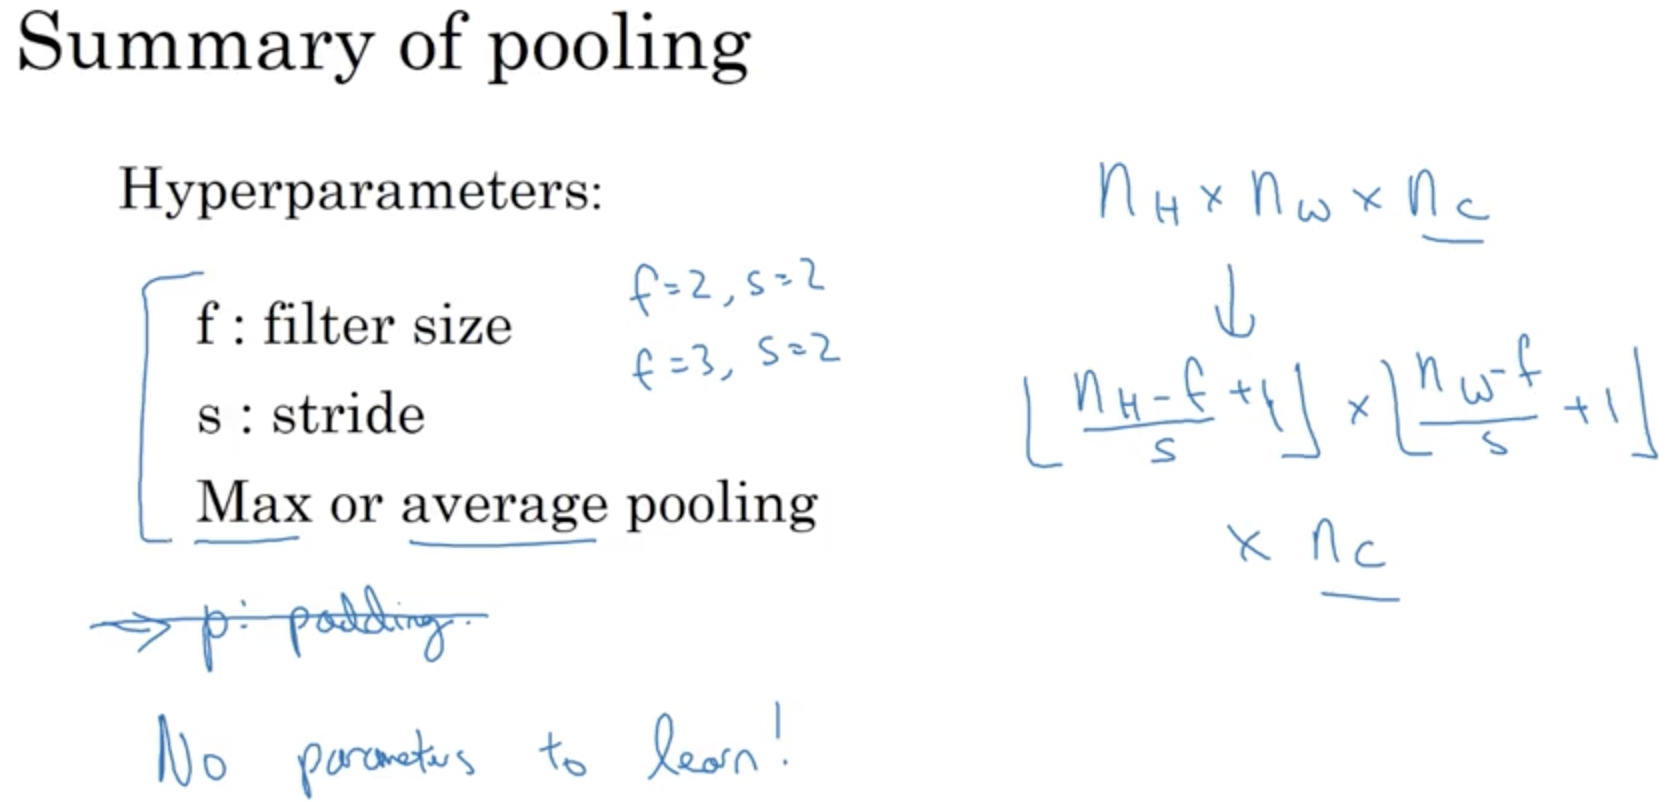 Summary of pooling
Hyperparameters:
f : filter size
s : stride
Max or average pooling
f=2, s=2
f=3, s=2
p: padding.
No parameters to learn!
n_H × n_W × n_C
↓
⌊(n_H - f)/s + 1⌋ × ⌊(n_W - f)/s + 1⌋
× n_C